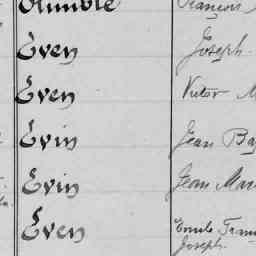 François
Even Joseph
Even Victor M
Evin Jean Ba
Evin Jean Mari
Even Emile Fran
Joseph